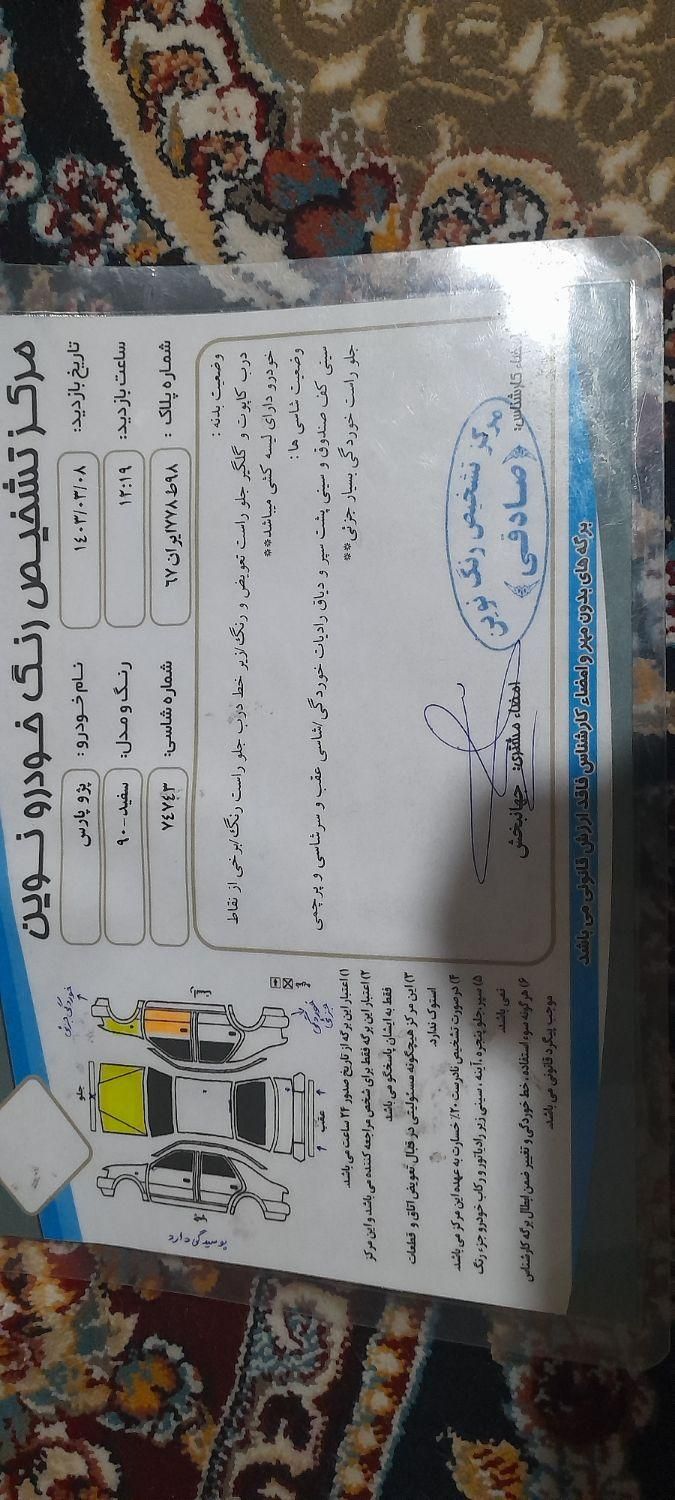 مرکز تشخیص رنگ خودرو نوین
تاریخ بازدید: ۱۴۰۳/۰۳/۰۸
نام خودرو: پژو پارس
ساعت بازدید: ۱۲:۱۹
رنگ و مدل: سفید-۹۰
شماره پلاک: ۹۸ط۷۷۸ایران۶۷
شماره شاسی: ۷۴۷۴۳
وضعیت بدنه :
درب کاپوت و گلگیر جلو راست تعویض و رنگ/زیر خط درب جلو راست رنگ/برخی از نقاط
خودرو دارای لیسه کشی میباشد**
وضعیت شاسی ها :
سینی کف صندوق و سینی پشت سپر و دیاق رادیات خوردگی/شاسی عقب و سرشاسی و پرچمی
جلو راست خوردگی بسیار جزئی**
امضاء کارشناس:
مرکز تشخیص رنگ نوین
(صادقی)
امضاء مشتری: جهانبخش
برگه های بدون مهر و امضاء کارشناس فاقد ارزش قانونی می باشد
خوردگی جزئی
جلو
عقب
خوردگی جزئی
پوسیدگی دارد
۱) اعتبار این برگه از تاریخ صدور ۲۴ ساعت می باشد.
۲) اعتبار این برگه فقط برای شخص مراجعه کننده می باشد و این مرکز
فقط به ایشان پاسخگو می باشد
۳) این مرکز هیچگونه مسئولیتی در قبال تعویض اتاق و قطعات
استوک ندارد
۴) درصورت تشخیص نادرست ۲۰٪ خسارت به عهده این مرکز می باشد.
۵) سپر، جلو پنجره ، آینه ، سینی زیر رادیاتور و رکاب خودرو جزء رنگ
نمی باشد
۶) هرگونه سوء استفاده، خط خوردگی و تغییر ضمن ابطال برگه کارشناس
موجب پیگرد قانونی می باشد.